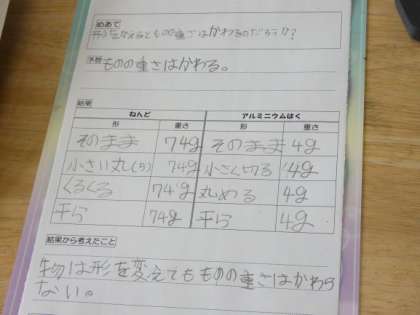 めあて
形を変えるとものの重さはかわるのだろうか?
予想 ものの重さはかわる。
結果
ねんど アルミニウムはく
形 重さ 形 重さ
そのまま 74g そのまま 4g
小さい丸(5) 74g 小さく切る 4g
くるくる 74g 丸める 4g
平ら 74g 平ら 4g
結果から考えたこと
物は形を変えてもものの重さはかわら
ない。